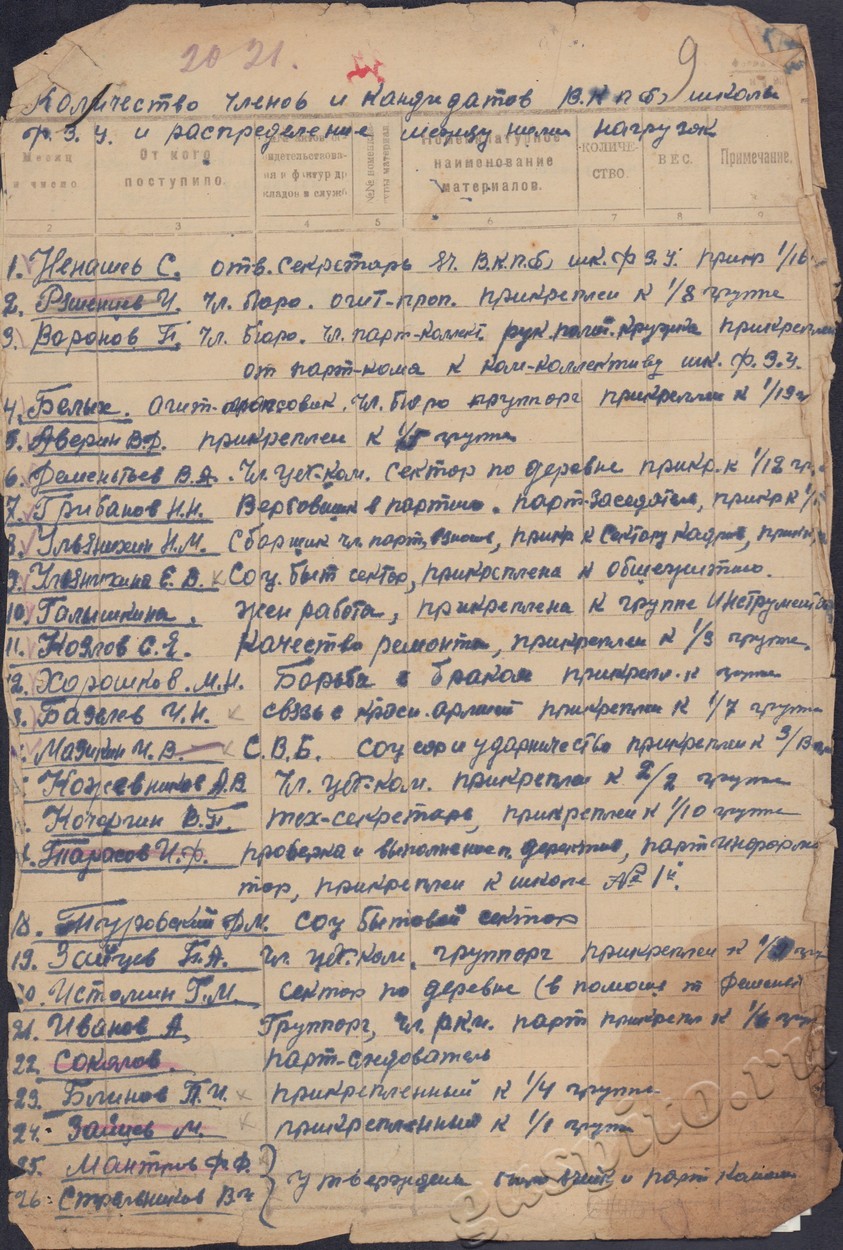 20 21.
9
Количество членов и кандидатов В.К.П.б, школы
ф.З.У. и распределение между ними нагрузок
Месяц и число
От кого поступило.
наименование материалов.
КОЛИЧЕСТВО
ВЕС.
Примечание.
2 3 4 5 6 7 8 9
1. Ненашев С. отв. секретарь яч. В.К.П.б, шк. ф.З.У. прикр 1/16
2. И. Чл. бюро. агит-проп. прикреплен к 1/8 группе
3. Воронов П. Чл. бюро. Чл. парт-коллект. рук. полит. кружка прикреплен
от парт-кома к ком-коллективу шк. ф.З.У.
4. Белых. Агит-массовик. Чл. бюро группорг прикреплен к 1/19
5. Аверин В.Ф. прикреплен к группе
6. Дементьев В.А. Чл. цех-ком. сектор по деревне прикр. к 1/12 гр.
7. Грибанов Н.Н. Вербовщик в партию. парт-заседатель, прикр к 1/
8. Ульянихин Н.М. Сборщик чл. парт. взносов, прикр к сектору кадров,
9. Ульянихина Е.В. Соц. быт сектор, прикреплена к общежитию.
10. Галышкина. жен работа, прикреплена к группе Инструмент
11. Козлов С.Я. Качество ремонта, прикреплен к 1/3 группе.
12. Хорошков М.Н. Борьба с браком прикрепл. к группе
Базалев И.Н. связь с красн. армией прикреплен к 1/7 группе
Мазикин И.В. С.В.Б. соц сор и ударничество прикреплен к 3/
Кожевников А.В. Чл. цех-ком. прикреплен к 2/2 группе
Кочергин В.П. тех-секретарь, прикреплен к 1/10 группе
Тарасов И.Ф. проверка и выполнение директив, парт информа
тор, прикреплен к школе № 1й.
18. Ф.М. соц бытовой сектор
19. Зайцев П.А. Чл. цех. ком. группорг прикреплен к
20. Истомин Г.М. сектор по деревне (в помощь т Дементь
21. Иванов А. Группорг, Чл. р.к.и. парт прикрепл к 1/6 групп
22. Соколов. парт-следователь
23. Блинов П.И. прикрепленный к 1/4 группе
24. Зайцев М. прикрепленный к 1/1 группе
25. Мантров Ф.Ф.
26. Стрельников В.И. утверждены бюро и парт
gaspito.ru